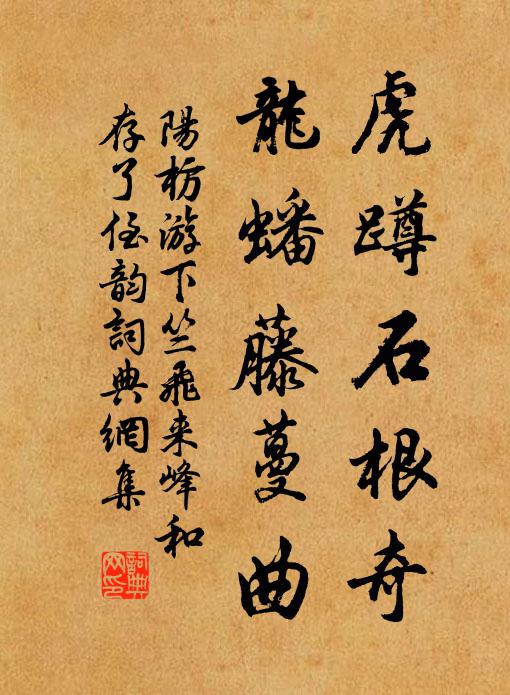 虎蹲石根奇
龍蟠藤蔓曲
陽枋游下竺飛来峰和
存了侄韵詞典網集
詞典
网印